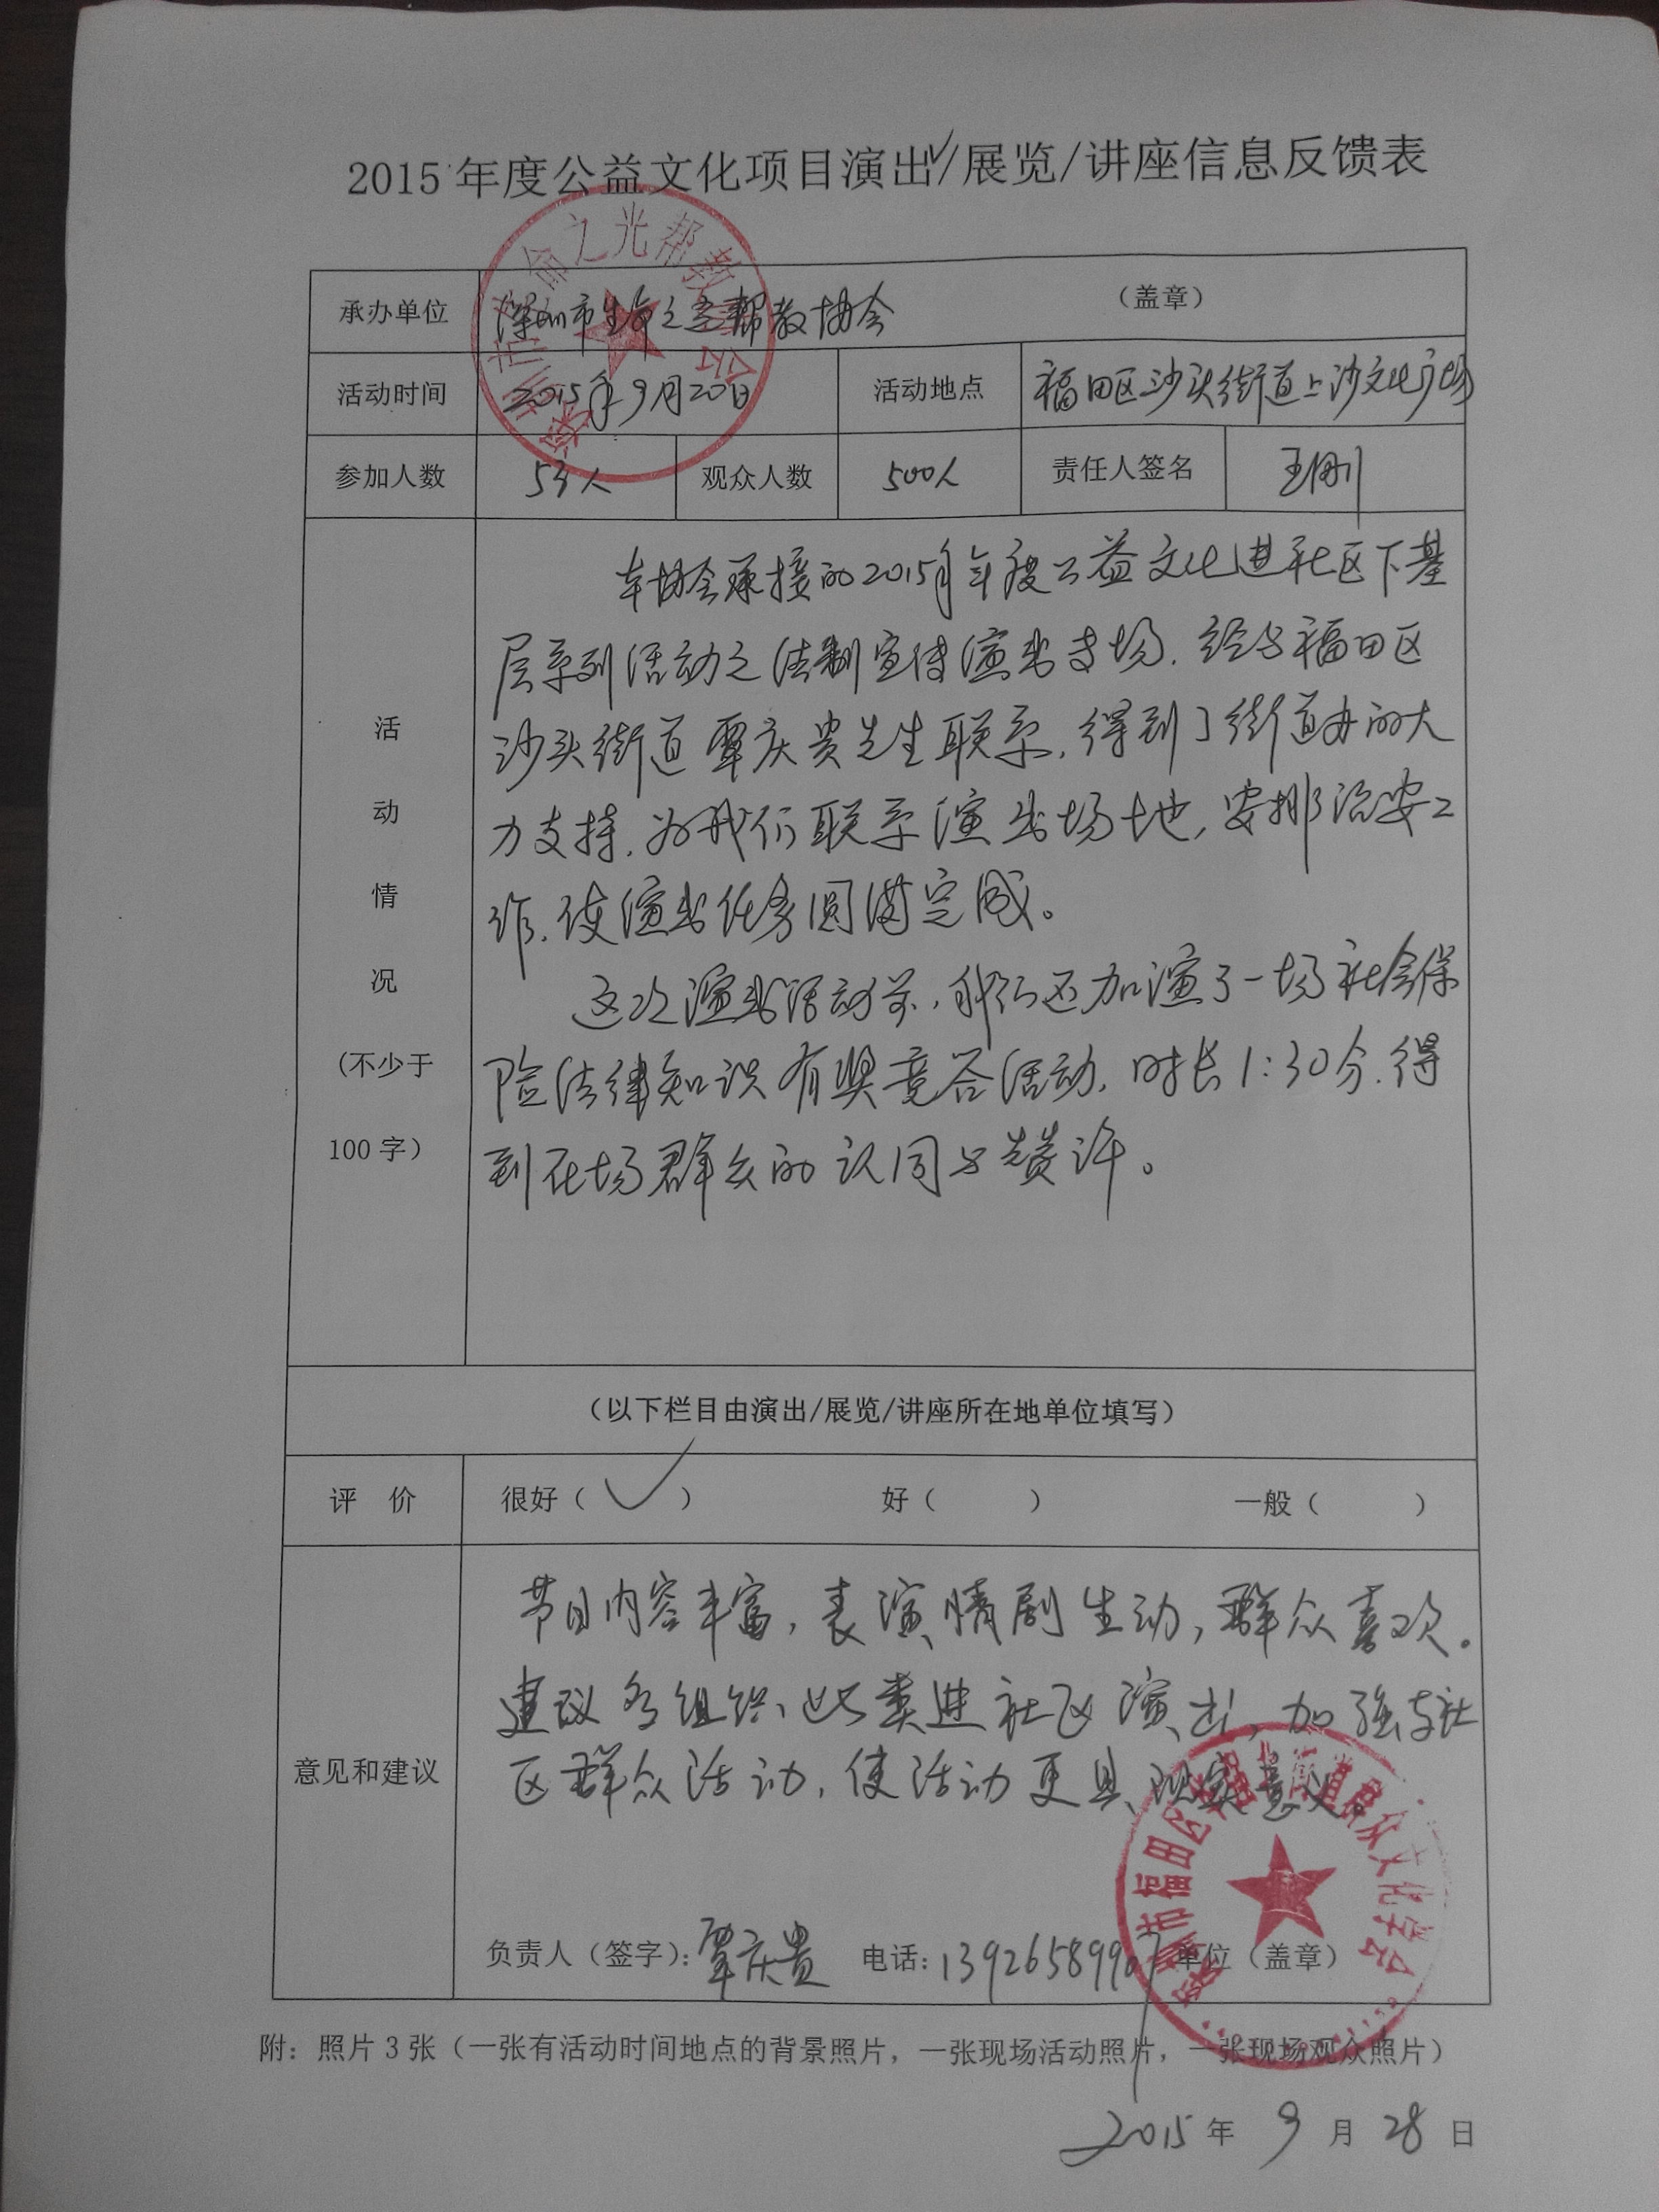 2015年度公益文化项目演出✓/展览/讲座信息反馈表
承办单位 深圳市生命之光帮教协会 （盖章）
活动时间 2015年9月20日 活动地点 福田区沙头街道上沙文化广场
参加人数 53人 观众人数 500人 责任人签名 王刚
活动情况（不少于100字）
本协会承接的2015年年度公益文化进社区下基
层系列活动之法制宣传演出专场.经与福田区
沙头街道覃庆贵先生联系,得到了街道办的大
力支持.为我们联系演出场地,安排治安工
作.使演出任务圆满完成。
这次演出活动前,我们还加演了一场社会保
险法律知识有奖竞答活动,时长1:30分.得
到在场群众的认同与赞许。
（以下栏目由演出/展览/讲座所在地单位填写）
评 价 很好（ ✓ ） 好（ ） 一般（ ）
意见和建议
节目内容丰富,表演情剧生动,群众喜欢。
建议多组织此类进社区演出,加强与社
区群众活动,使活动更具现实意义。
负责人（签字）：覃庆贵 电话：13926589967 单位（盖章）
附：照片3张（一张有活动时间地点的背景照片，一张现场活动照片，一张现场观众照片）
2015年 9月 28日